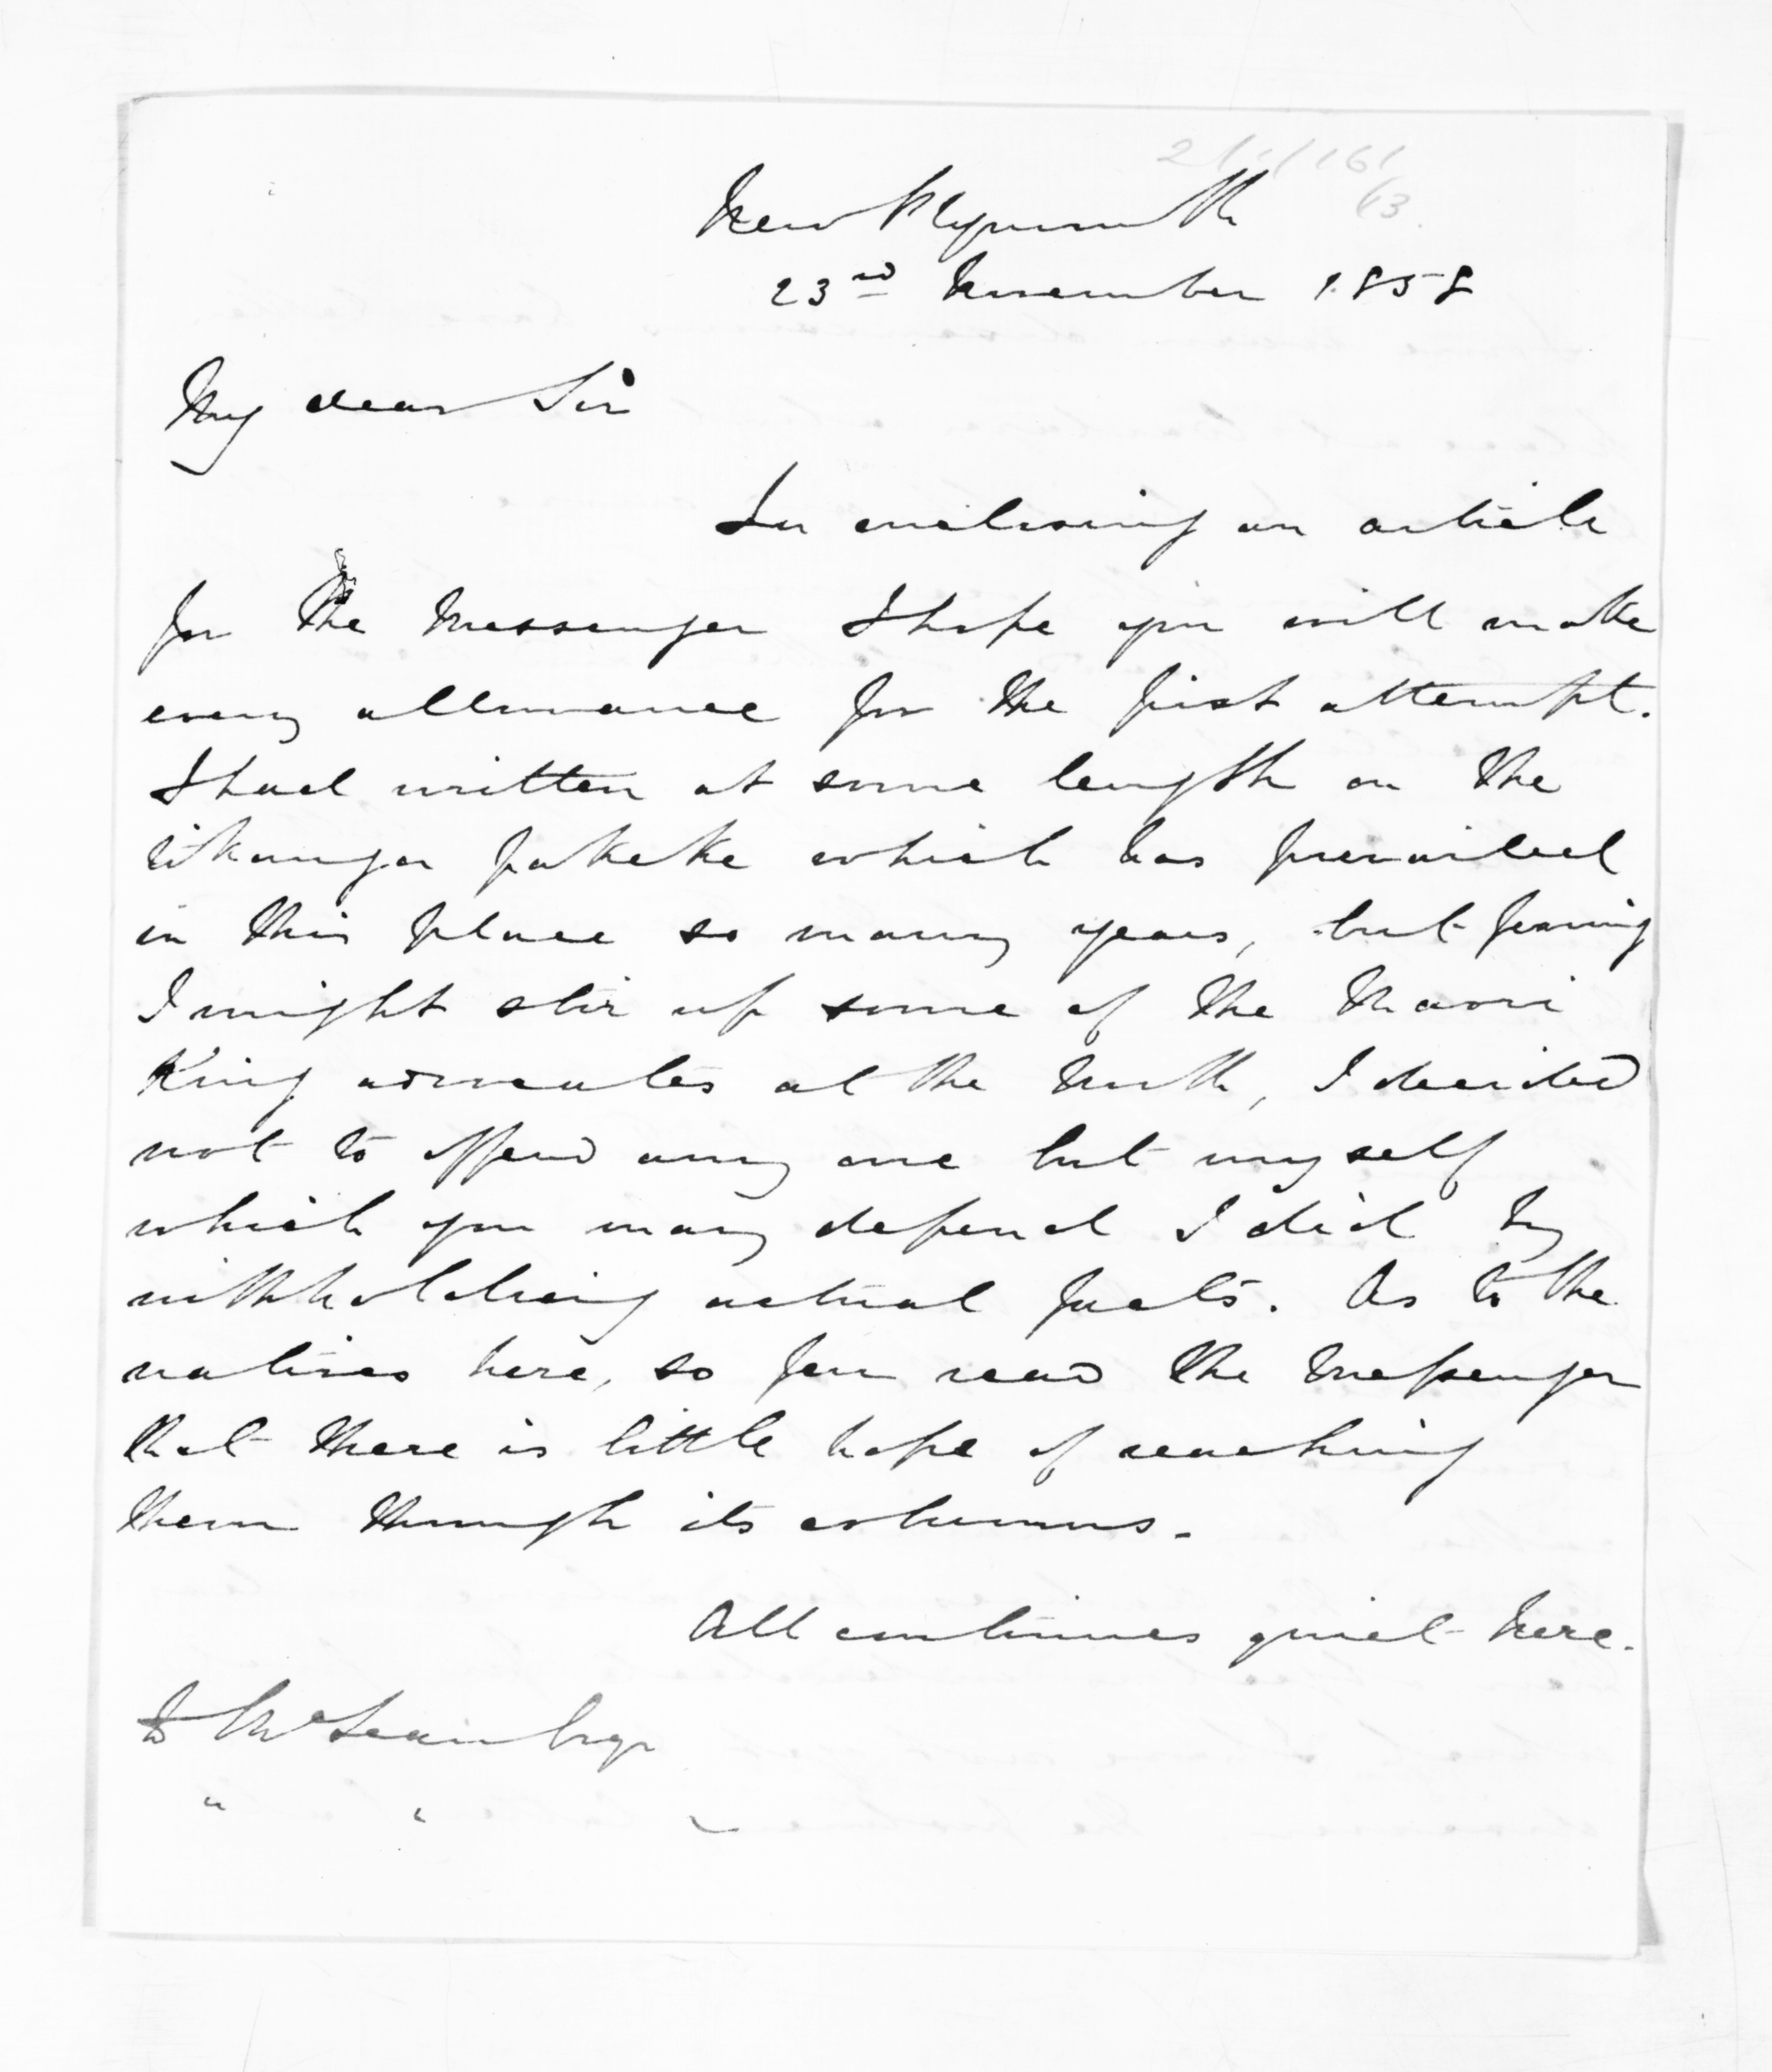 New Plymouth
23rd November 1858
My dear Sir
In enclosing an article
for the Messenger I hope you will make
every allowance for the first attempt.
I had written at some length on the
tikanga pakeke which has prevailed
in this place so many years, but fearing
I might stir up some of the Maori
King advocates at the North, I decided
not to offend any one but myself
which you may depend I did by
withholding actual facts. As to the
natives here, so few read the Messenger
that there is little hope of reaching
them through its columns.
All continues quiet here.
D McLean Esqr
" " "